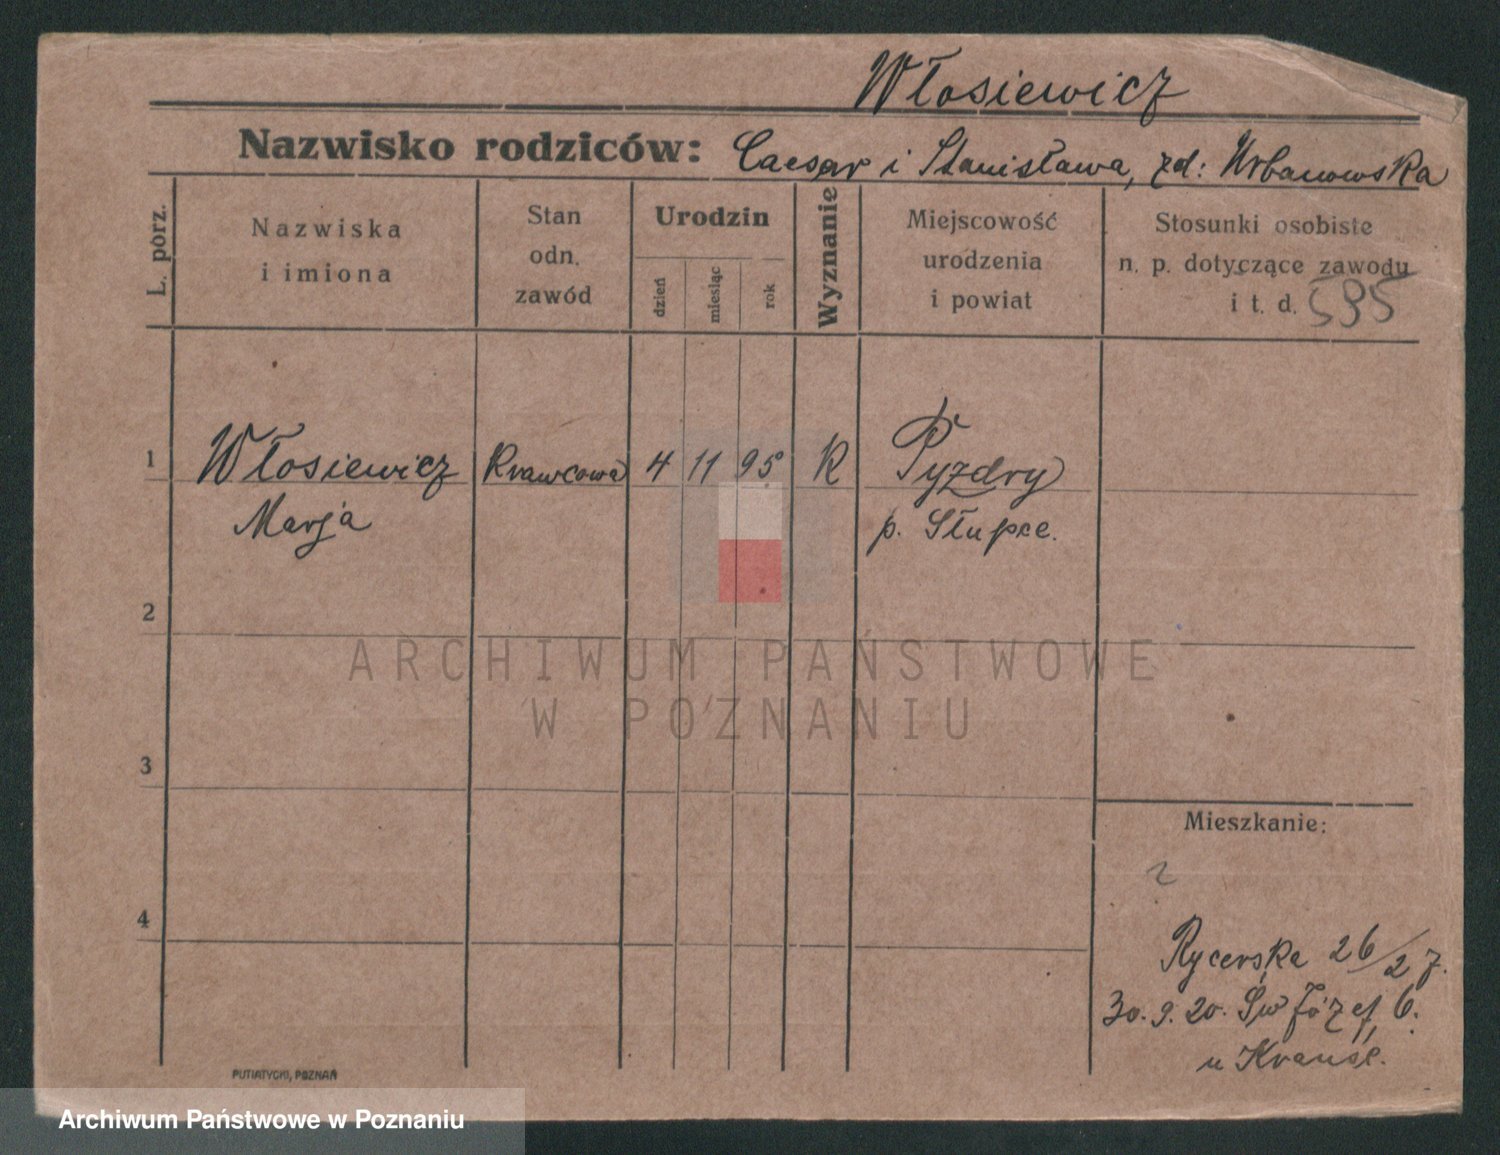 Włosiewicz
Nazwisko rodziców: Caesar i Stanisława, zd: Urbanowska
L. porz.
Nazwiska
i imiona
Stan
odn.
zawód
Urodzin
dzień
miesiąc
rok
Wyznanie
Miejscowość
urodzenia
i powiat
Stosunki osobiste
n. p. dotyczące zawodu
i t. d. 595
1 Włosiewicz Krawcowa 4 11 95 K Pyzdry
Marja p. Słupce.
2
ARCHIWUM PAŃSTWOWE
W POZNANIU
3
Mieszkanie:
4
Rycerska 26/27.
30.9.20. Św Józef 6.
u Krause.
PUTIATYCKI, POZNAŃ
Archiwum Państwowe w Poznaniu